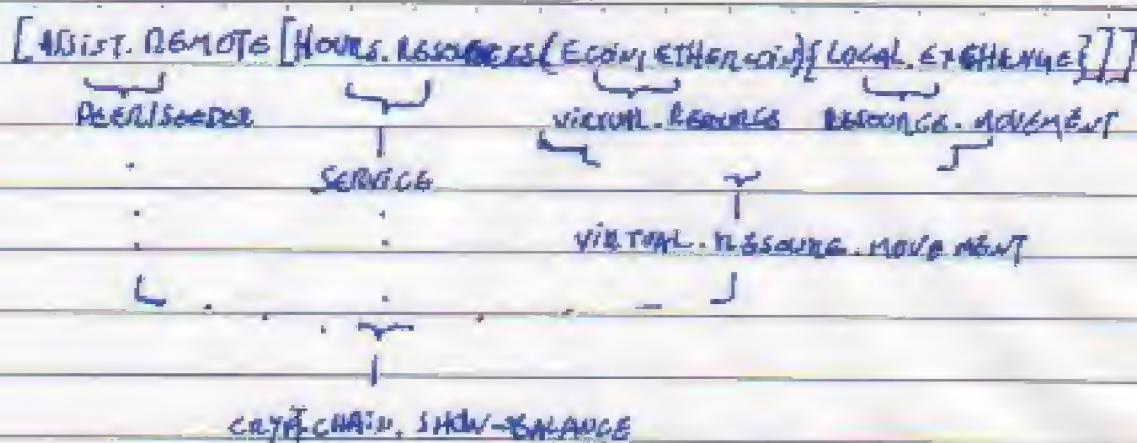 [ASSIST.REMOTE[HOURS.RESOURCES(ECOIN,ETHERCOIN){LOCAL.EXCHENGE{]]]
PEER/SEEDER VIRTUAL.RESOURCE RESOURCE.MOVEMENT
SERVICE
VIRTUAL.RESSOURE.MOVEMENT
CRYPTCHAIN.SHOW-BALANCE